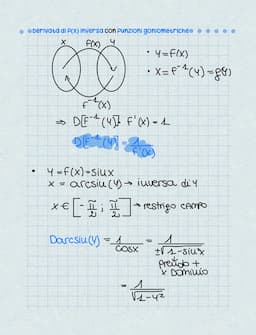 Derivata di f(x) inversa con funzioni goniometriche
x f(x) y
• y = f(x)
• x = f⁻¹(y) = g(y)
f⁻¹(x)
⇒ D[f⁻¹(y)] · f'(x) = 1
D[f⁻¹(y)] = 1/f'(x)
• y = f(x) = sinx
x = arcsin(y) → inversa di y
x ∈ [-π/2 ; π/2] → restrigo campo
Darcsin(y) = 1/cosx = 1/±√1-sin²x
prendo +
x dominio
= 1/√1-y²